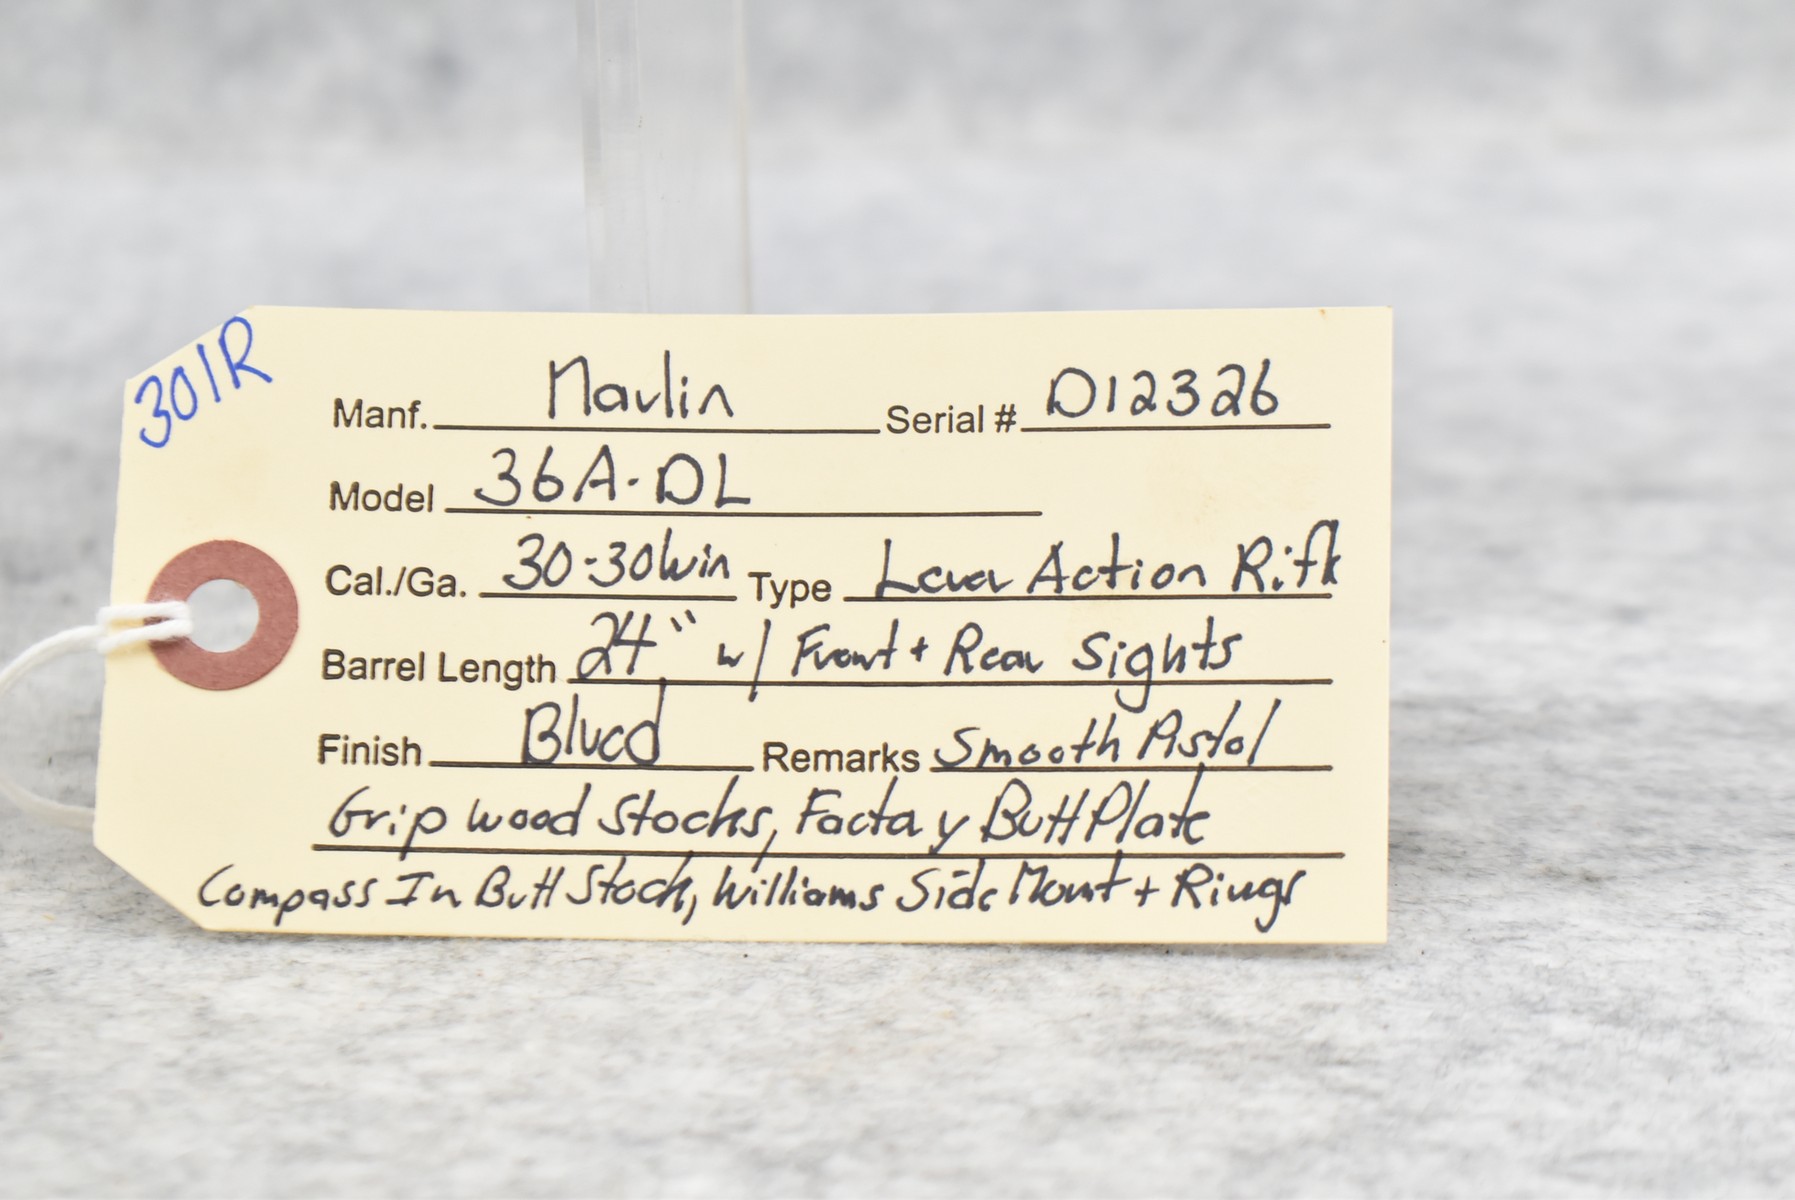 301R
Manf. Marlin Serial # D12326
Model 36A-DL
Cal./Ga. 30-30 Win Type Lever Action Rifle
Barrel Length 24" w/ Front + Rear Sights
Finish Blued Remarks Smooth Pistol
Grip Wood Stocks, Factory Butt Plate
Compass In Butt Stock, Williams Side Mount + Rings